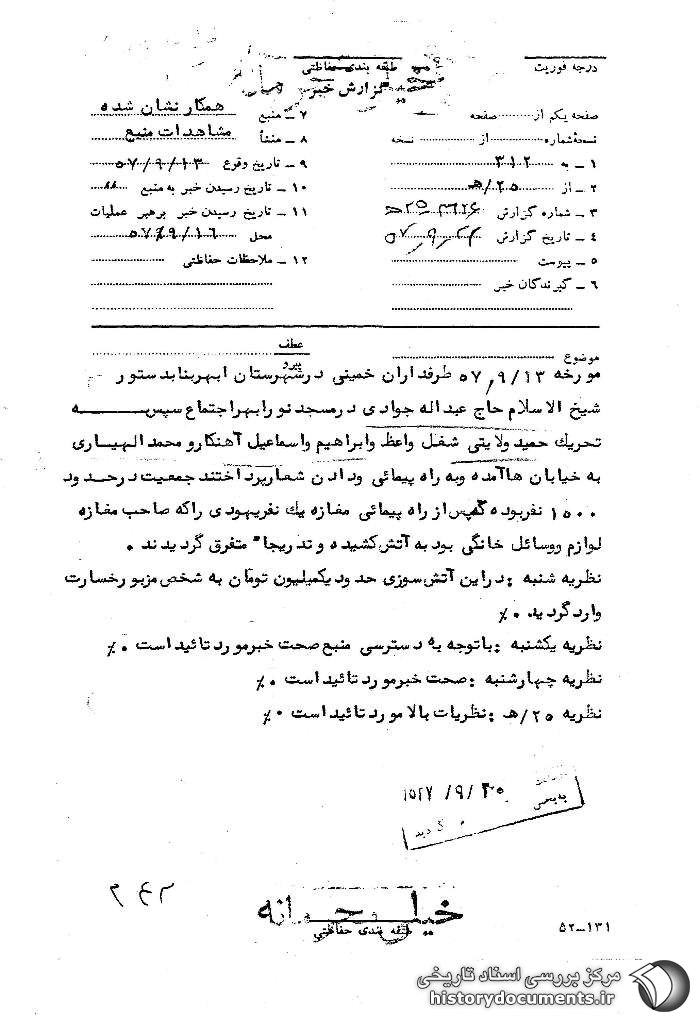 درجه فوریت
طبقه بندی حفاظتی
گزارش خبر
صفحه یکم از صفحه
نسخه شماره از نسخه
۱ ـ به ۳۱۲
۲ ـ از ۲۵/هـ
۳ ـ شماره گزارش
۴ ـ تاریخ گزارش
۵ ـ پیوست
۶ ـ گیرندگان خبر
۷ ـ منبع همکار نشان شده
۸ ـ منشأ مشاهدات منبع
۹ ـ تاریخ وقوع ۵۷/۹/۱۳
۱۰ ـ تاریخ رسیدن خبر به منبع "
۱۱ ـ تاریخ رسیدن خبر برهبر عملیات
محل ۵۷/۹/۱۶
۱۲ ـ ملاحظات حفاظتی
موضوع
عطف
پیرو
مورخه ۵۷/۹/۱۳ طرفداران خمینی درشهرستان ابهربنابدستور
شیخ الاسلام حاج عبداله جوادی درمسجد نورابهراجتماع سپس به
تحریک حمید ولایتی شغل واعظ وابراهیم واسماعیل آهنکارو محمد الهیاری
به خیابان هاآمده وبه راه پیمائی ودادن شعارپرداختند جمعیت درحدود
۱۵۰۰ نفربوده که پس از راه پیمائی مغازه یک نفریهودی راکه صاحب مغازه
لوازم ووسائل خانگی بود به آتش کشیده وتدریجا" متفرق گردیدند .
نظریه شنبه : دراین آتش سوزی حدود یکمیلیون تومان به شخص مزبور خسارت
وارد گردید . ٪
نظریه یکشنبه : باتوجه به دسترسی منبع صحت خبرمورد تائید است . ٪
نظریه چهارشنبه : صحت خبرمورد تائید است . ٪
نظریه ۲۵/هـ : نظریات بالا مورد تائید است ۰٪
به بخش
گردید
۲۴۲
خیلی محرمانه
طبقه بندی حفاظتی
۵۲-۱۳۱
مرکز بررسی اسناد تاریخی
historydocuments.ir